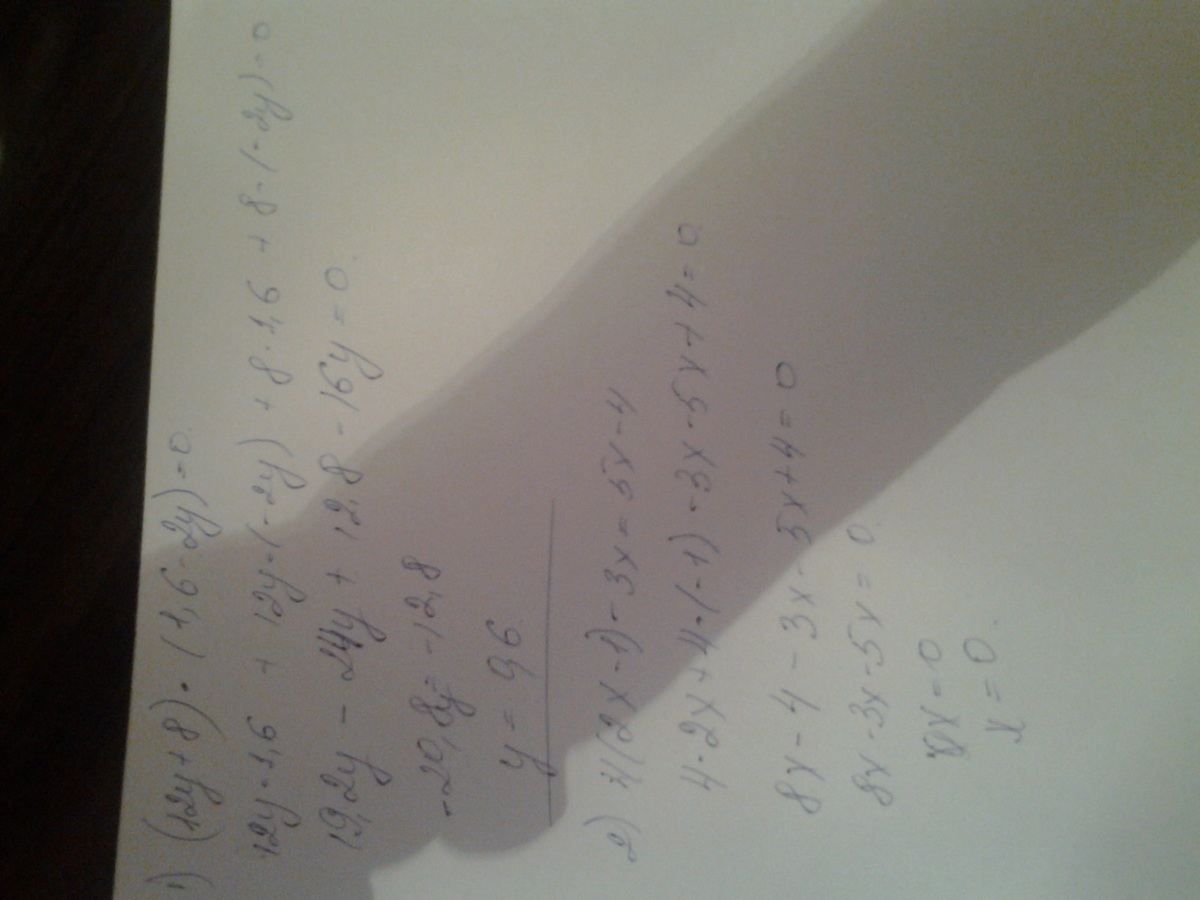 1) (12y+8)·(1,6-2y)=0.
12y·1,6 + 12y·(-2y) + 8·1,6 + 8·(-2y)=0
19,2y - 24y + 12,8 - 16y = 0.
-20,8y = -12,8
y = 0,6
2) 4(2x-1)-3x=5x-4
4·2x+4·(-1)-3x-5x+4=0.
8x-4-3x-5x+4=0
8x-3x-5x=0.
x=0
x=0.